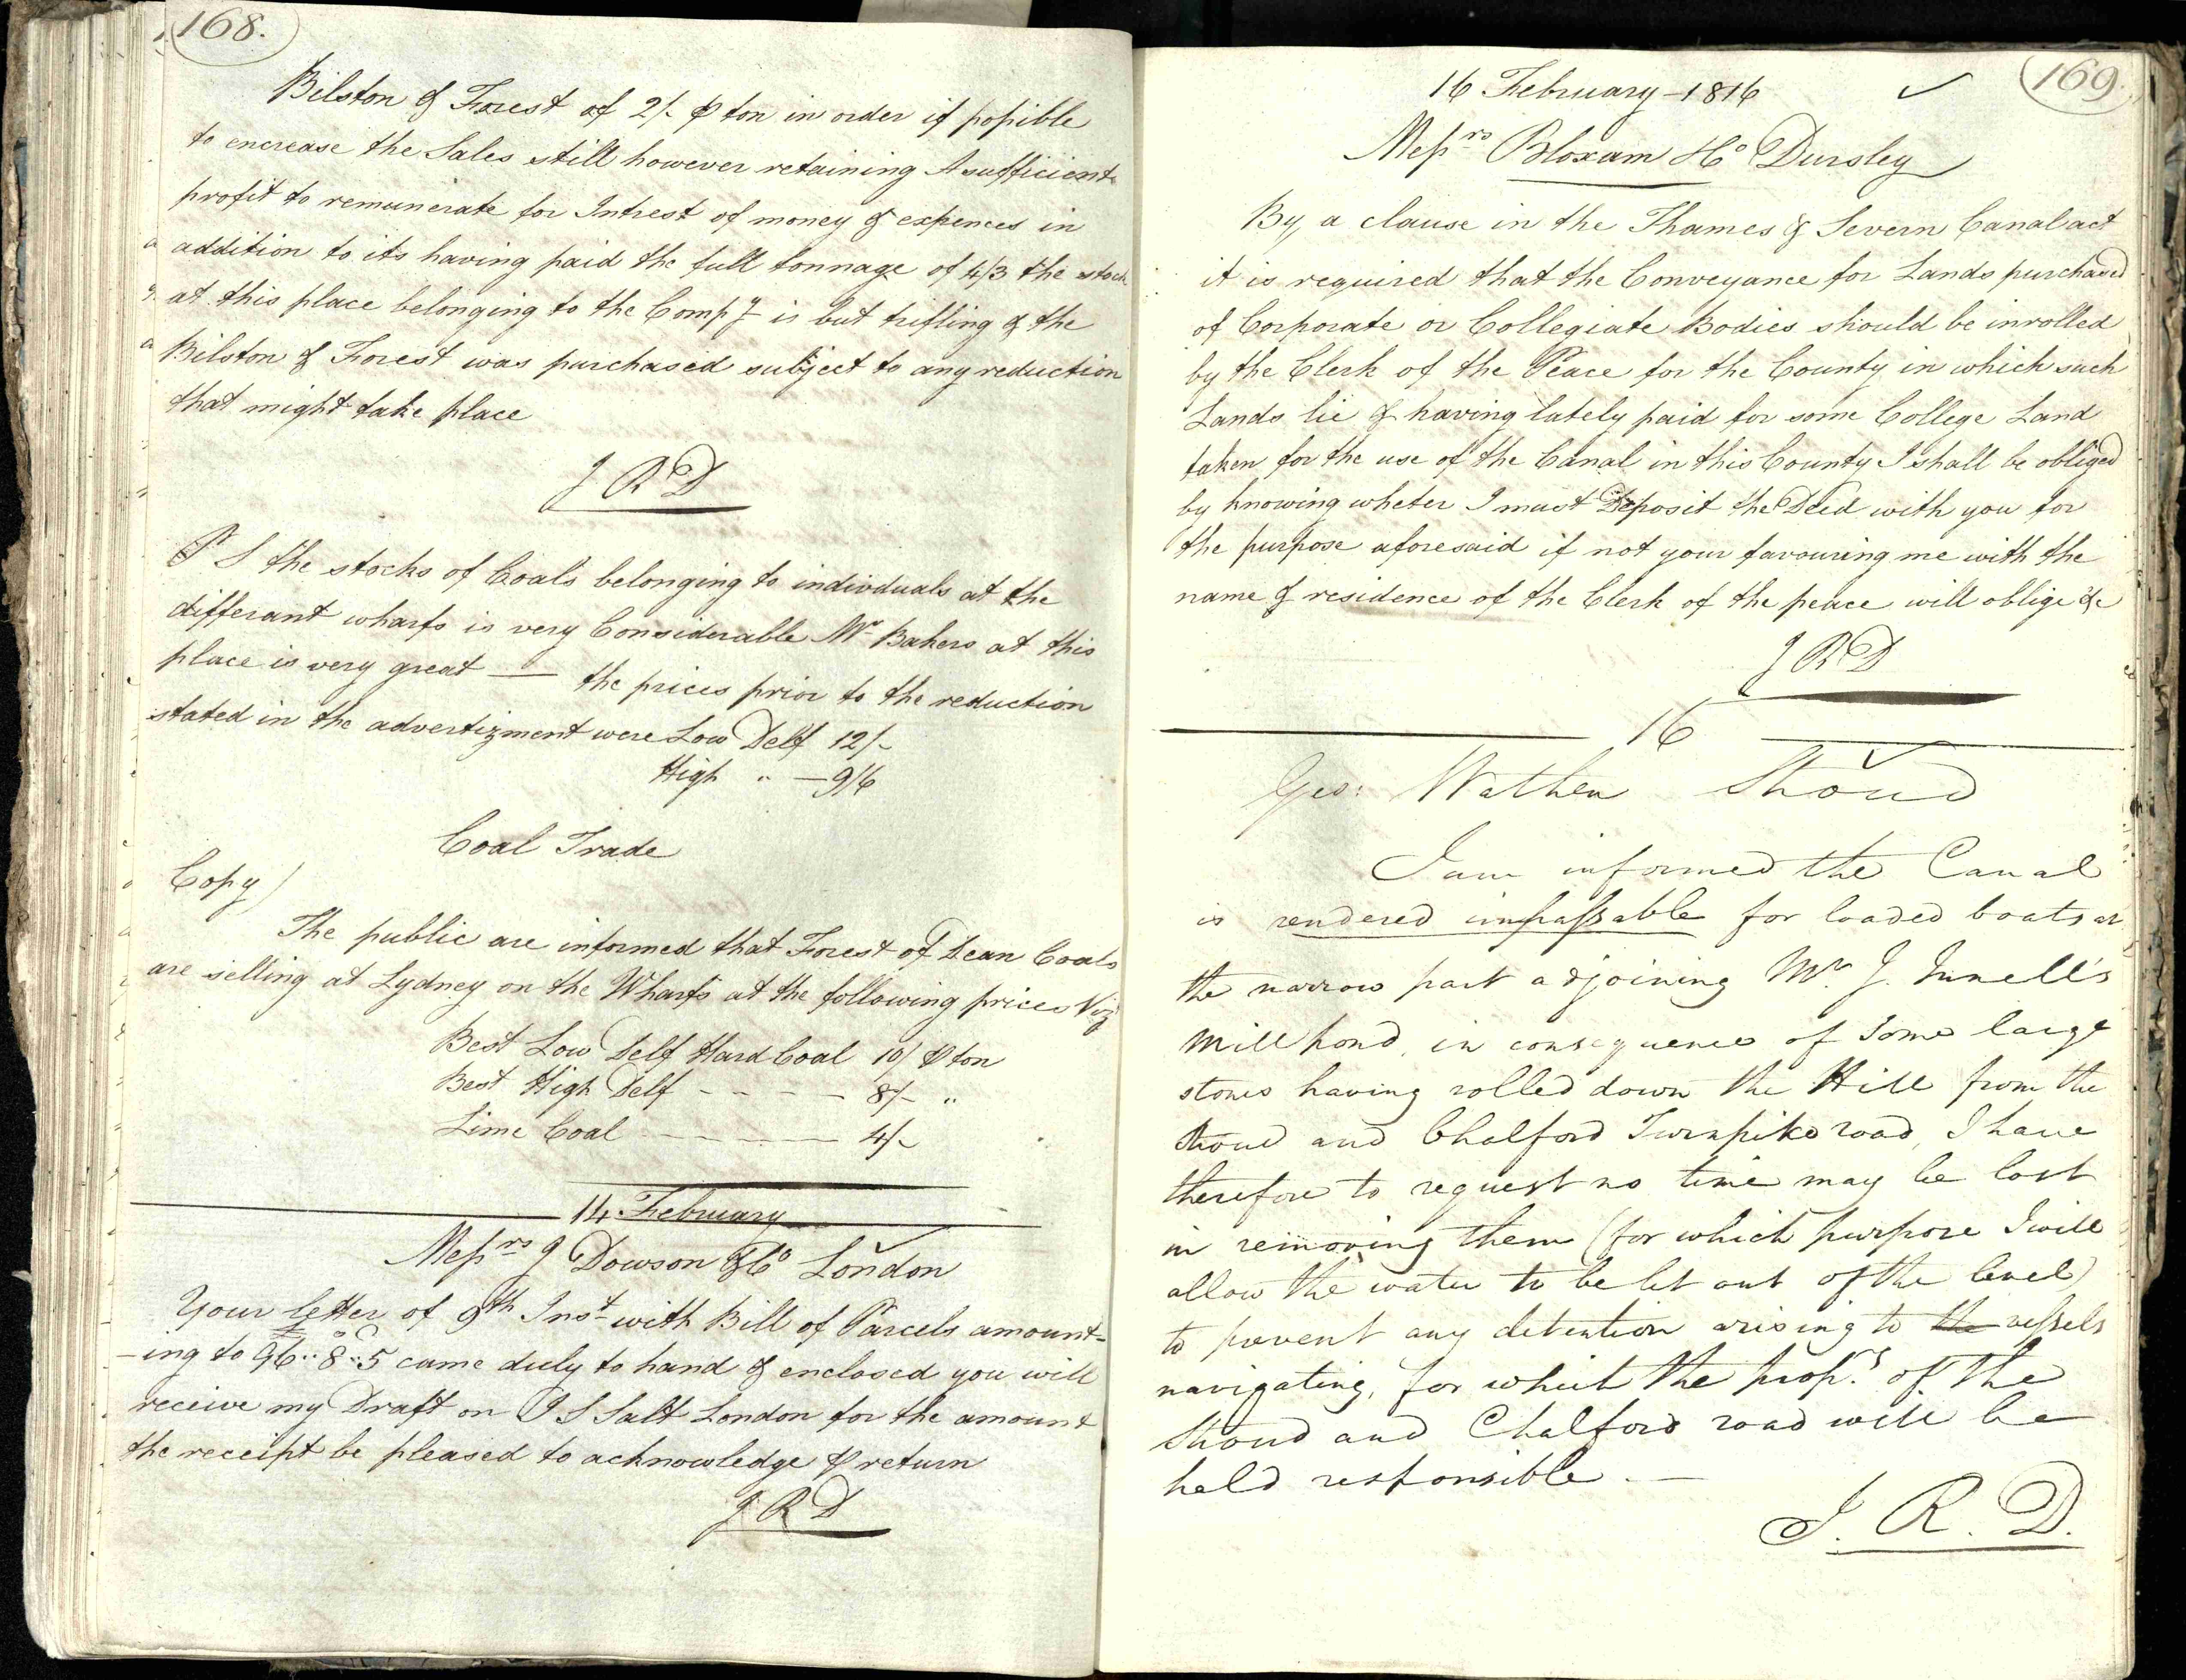 168.
Bilston & Forest of 2/- ₱ ton in order if possible
to encrease the Sales still however retaining A sufficient
profit to remunerate for Intrest of money & expences in
addition to its having paid the full tonnage of 4/3 the stock
at this place belonging to the Compy is but trifling & the
Bilston & Forest was purchased subject to any reduction
that might take place
J R D
P S the stocks of Coals belonging to indivduals at the
differant wharfs is very Considerable Mr Bakers at this
place is very great — the prices prior to the reduction
stated in the advertizment were Low Delf 12/-
High " — 9/6
Coal Trade
Copy)
The public are informed that Forest of Dean Coals
are selling at Lydney on the Wharfs at the following prices Viz
Best Low Delf Hard Coal 10/ ₱ ton
Best High Delf - - - - - 8/- "
Lime Coal - - - - - 4/-
14 February
Messrs J Dowson & Co London
Your letter of 9th Inst with Bill of Parcels amount-
-ing to 96..8..5 came duly to hand & enclosed you will
receive my Draft on J S Salt London for the amount
the receipt be pleased to acknowledge ₱ return
J R D
169.
16 February - 1816
Messrs Bloxam & Co Dursley
By a clause in the Thames & Severn Canal act
it is required that the Conveyance for Lands purchased
of Corporate or Collegiate Bodies should be inrolled
by the Clerk of the Peace for the County in which such
Lands lie & having lately paid for some College Land
taken for the use of the Canal in this County I shall be obliged
by knowing wheter I must Deposit the Deed with you for
the purpose aforesaid if not your favouring me with the
name & residence of the Clerk of the peace will oblige &c
J R D
16
Geo: Wathen Stroud
I am informed the Canal
is rendered impassable for loaded boats at
the narrow part adjoining Mr. J. Innell's
Mill pond, in consequence of some large
stones having rolled down the Hill from the
Stroud and Chalford Turnpike road, I have
therefore to request no time may be lost
in removing them (for which purpose I will
allow the water to be let out of the level)
to prevent any detention arising to the vessels
navigating, for which the propr.s of the
Stroud and Chalford road will be
held responsible. —
J. R. D.